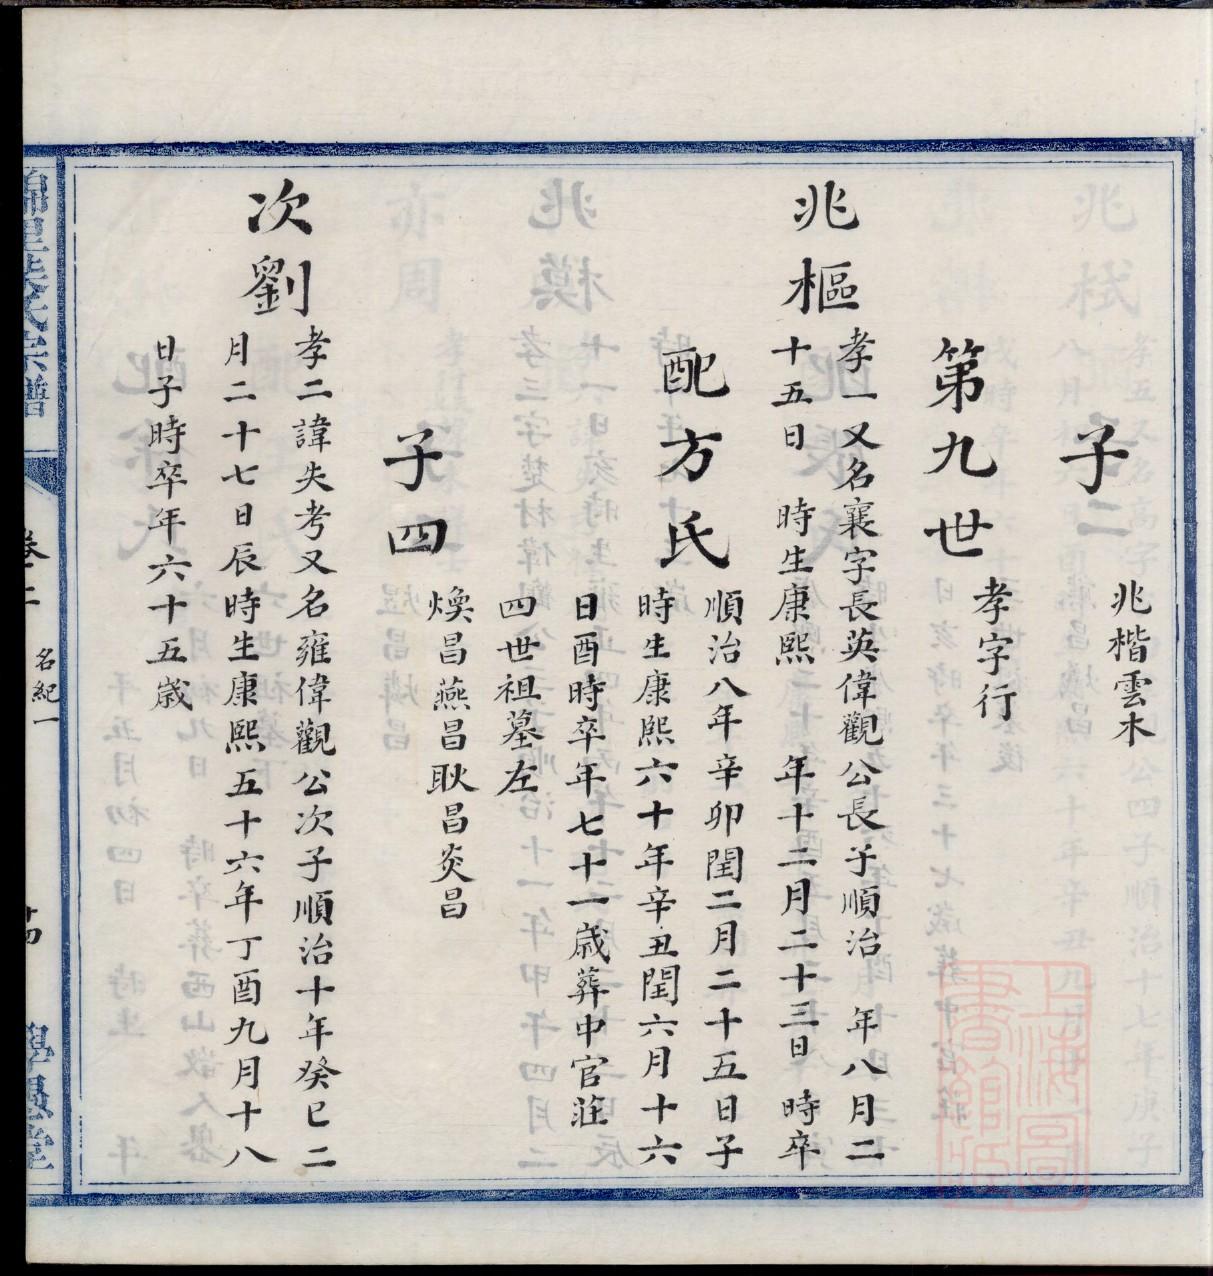 子二
兆楷雲木
第九世
孝字行
兆樞
孝一又名襄字長英偉觀公長子順治 年八月二
十五日 時生康熙 年十二月二十三日 時卒
配方氏
順治八年辛卯閏二月二十五日子
時生康熙六十年辛丑閏六月十六
日酉時卒年七十一歲葬中官莊
四世祖墓左
子四
煥昌燕昌耿昌炎昌
次劉
孝二諱失考又名雍偉觀公次子順治十年癸巳二
月二十七日辰時生康熙五十六年丁酉九月十八
日子時卒年六十五歲
卷二
名紀一
上海圖書館藏